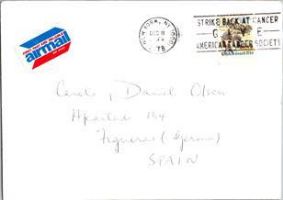 airmail
NEW YORK, NY
DEC 8
78
STRIKE BACK AT CANCER
G E
AMERICAN CANCER SOCIETY
Carole, Daniel Olson
Apartado 184
Figueras (Gerona)
SPAIN